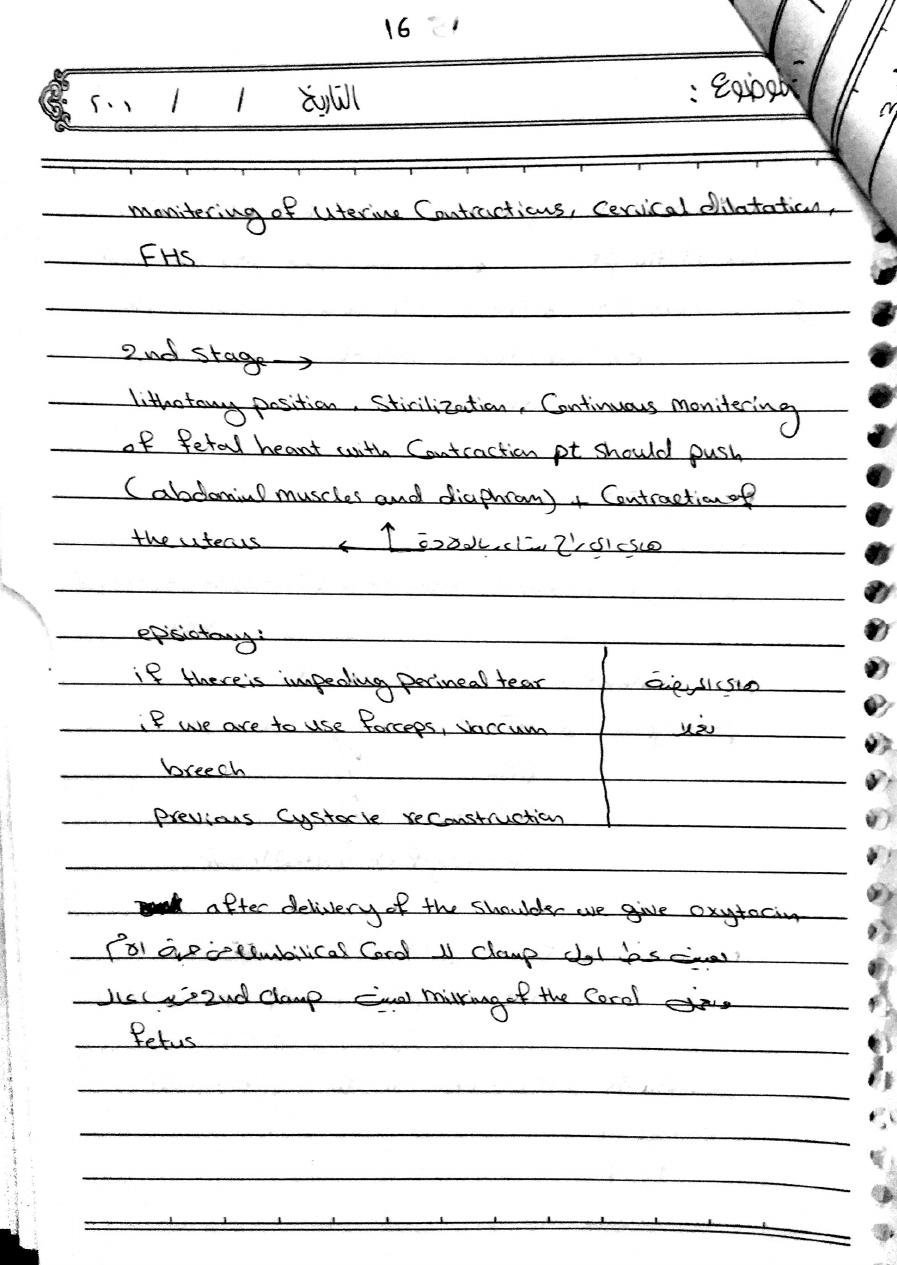 16
الموضوع : التاريخ / / ٢٠٠١
monitering of uterine Contractions, Cervical dilatation,
FHS
2nd stage →
lithotomy position, Stirilization, Continuous monitering
of fetal heart with Contraction pt should push
(abdominl muscles and diaphram) + Contraction of
the uterus ← ↑ هاي الي راح تساعد بالولادة
episiotomy:
if there is impeding perineal tear هاي المريضة
if we are to use forceps, vaccum نخدر
breech
previous Cystocle reconstruction
after delivery of the shoulder we give oxytocin
بعدين نحط اول clamp لل umbilical Cord من جهة الأم
ونعمل milking of the Cord بعدين 2nd Clamp قريب عال
fetus